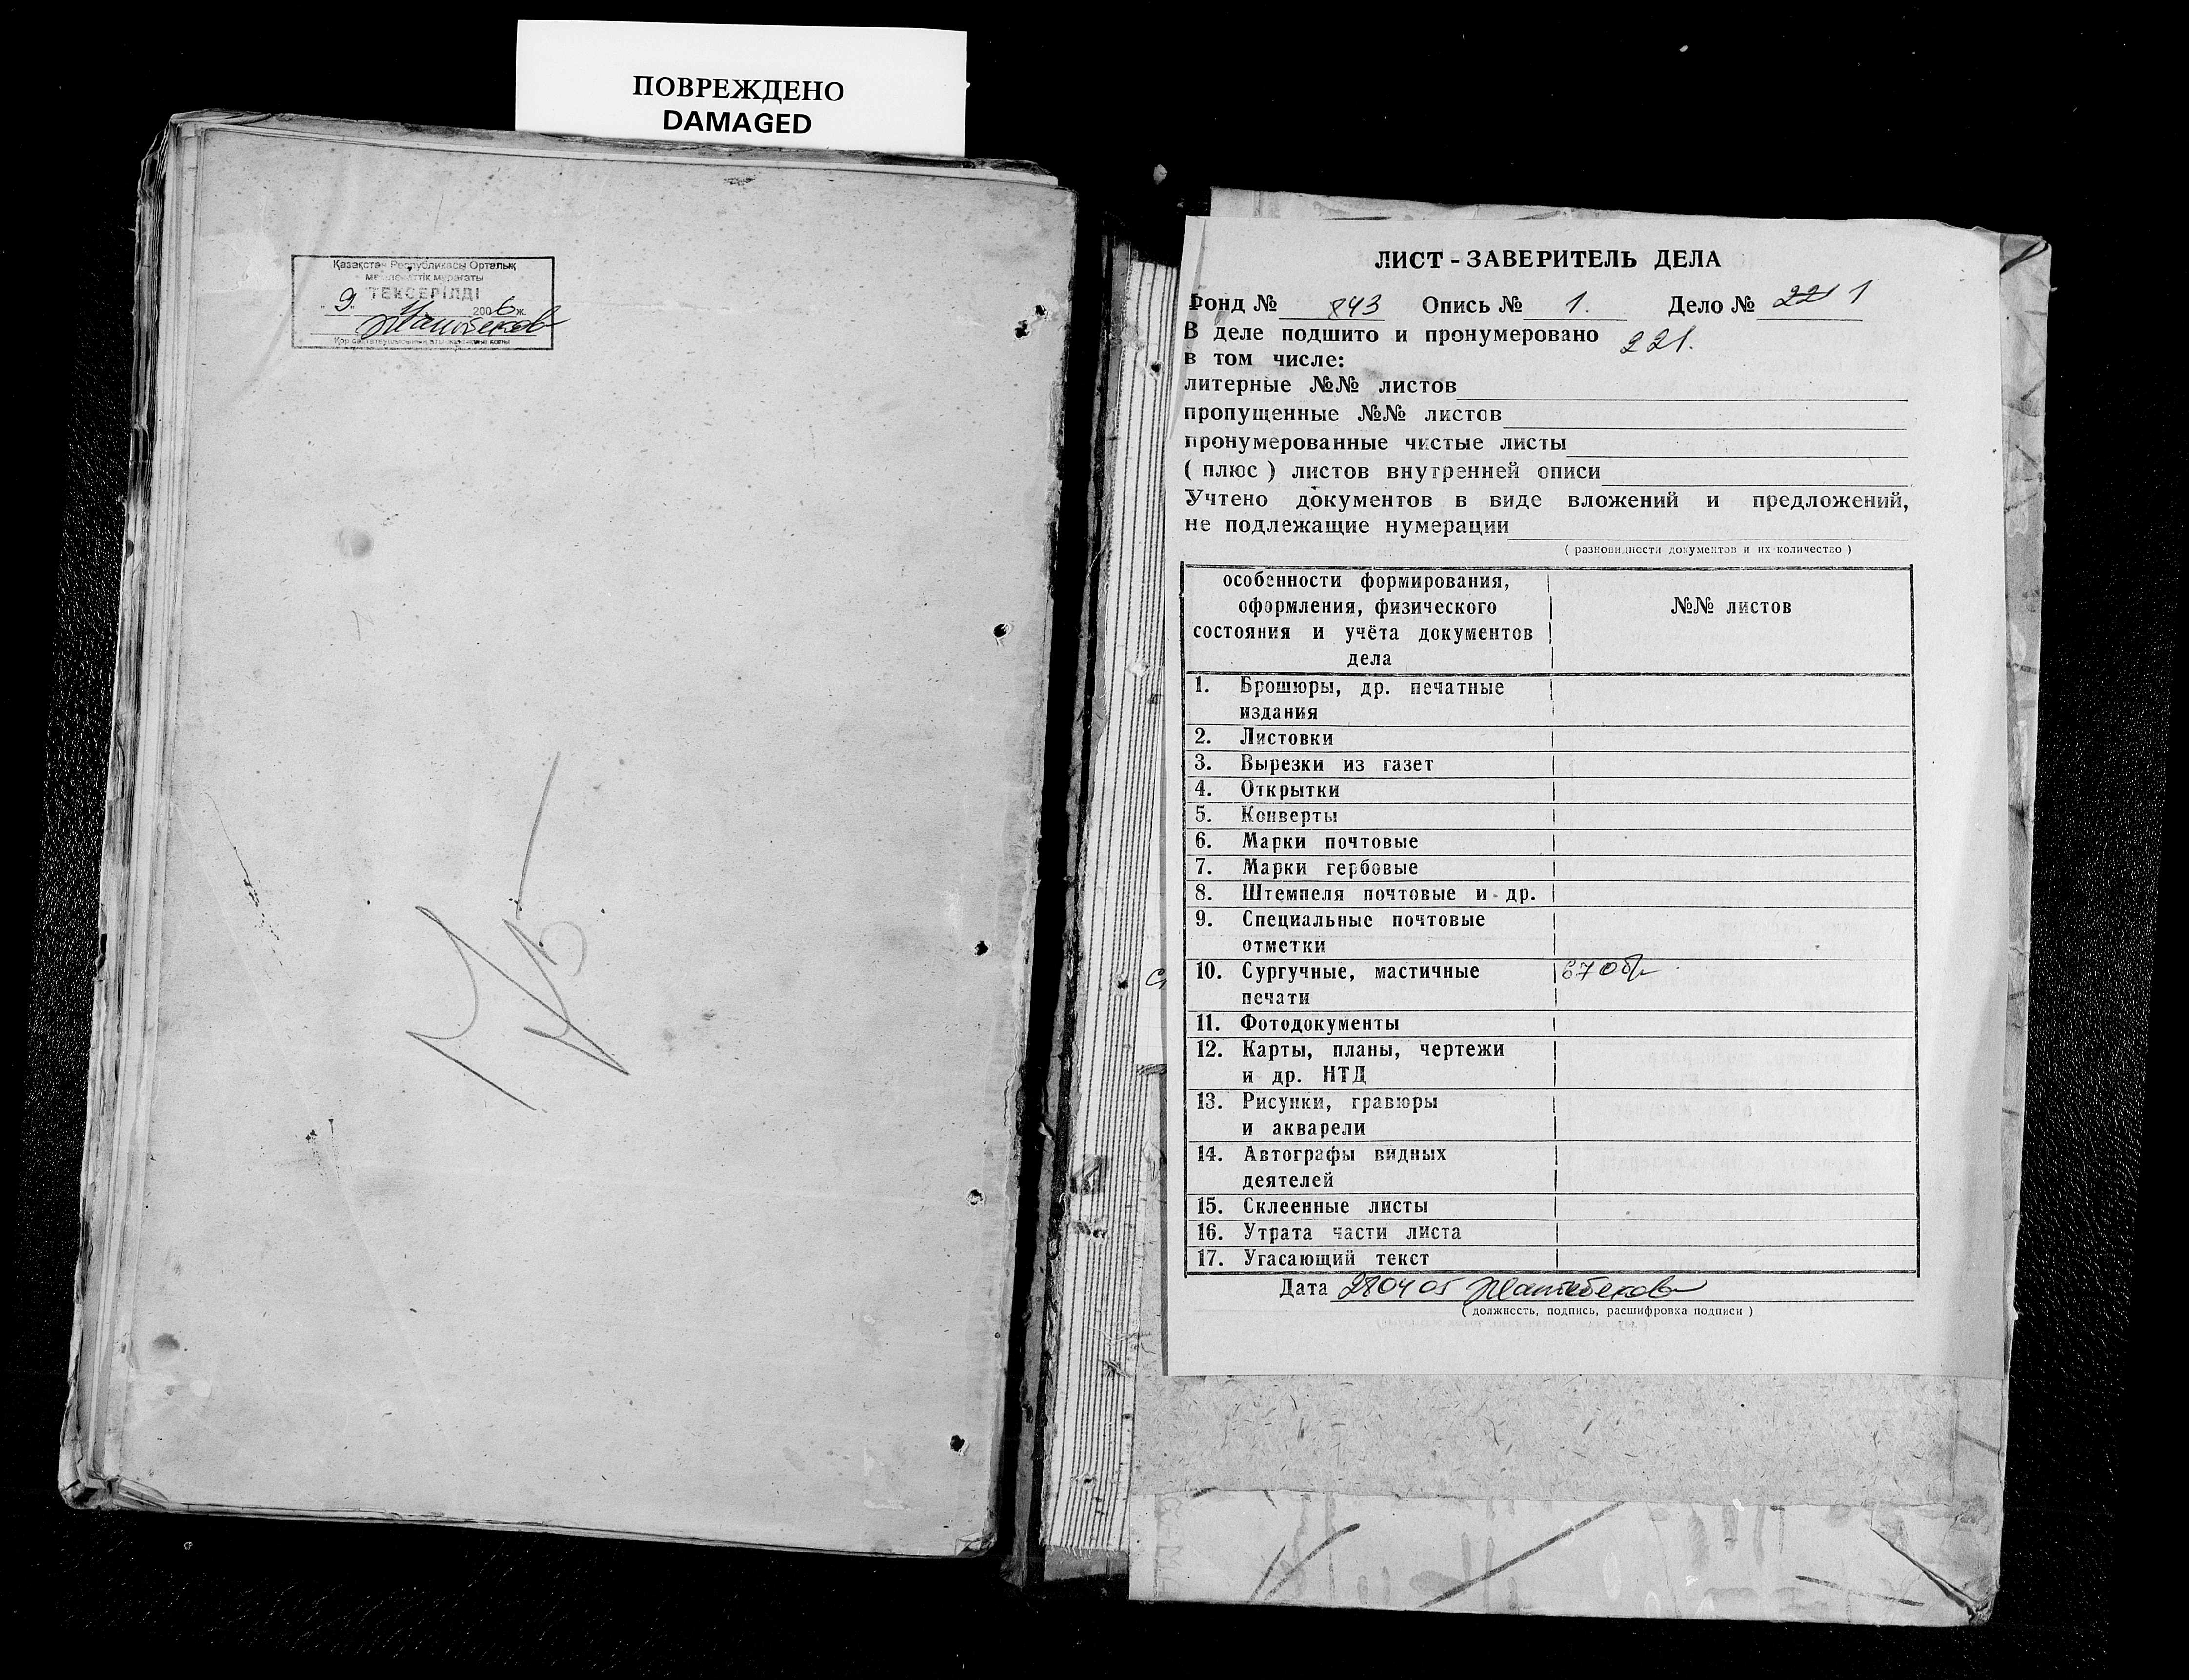 ПОВРЕЖДЕНО
DAMAGED
Қазақстан Республикасы Орталық
мемлекеттік мұрағаты
ТЕКСЕРІЛДІ
" 9 " 2006 ж.
ЛИСТ - ЗАВЕРИТЕЛЬ ДЕЛА
Фонд № 843 Опись № 1. Дело № 221 1
В деле подшито и пронумеровано 221.
в том числе:
литерные №№ листов
пропущенные №№ листов
пронумерованные чистые листы
( плюс ) листов внутренней описи
Учтено документов в виде вложений и предложений,
не подлежащие нумерации
( разновидности документов и их количество )
особенности формирования,
оформления, физического
состояния и учёта документов
дела
№№ листов
1. Брошюры, др. печатные
издания
2. Листовки
3. Вырезки из газет
4. Открытки
5. Конверты
6. Марки почтовые
7. Марки гербовые
8. Штемпеля почтовые и др.
9. Специальные почтовые
отметки
10. Сургучные, мастичные 67 об
печати
11. Фотодокументы
12. Карты, планы, чертежи
и др. НТД
13. Рисунки, гравюры
и акварели
14. Автографы видных
деятелей
15. Склеенные листы
16. Утрата части листа
17. Угасающий текст
Дата 280405
( должность, подпись, расшифровка подписи )